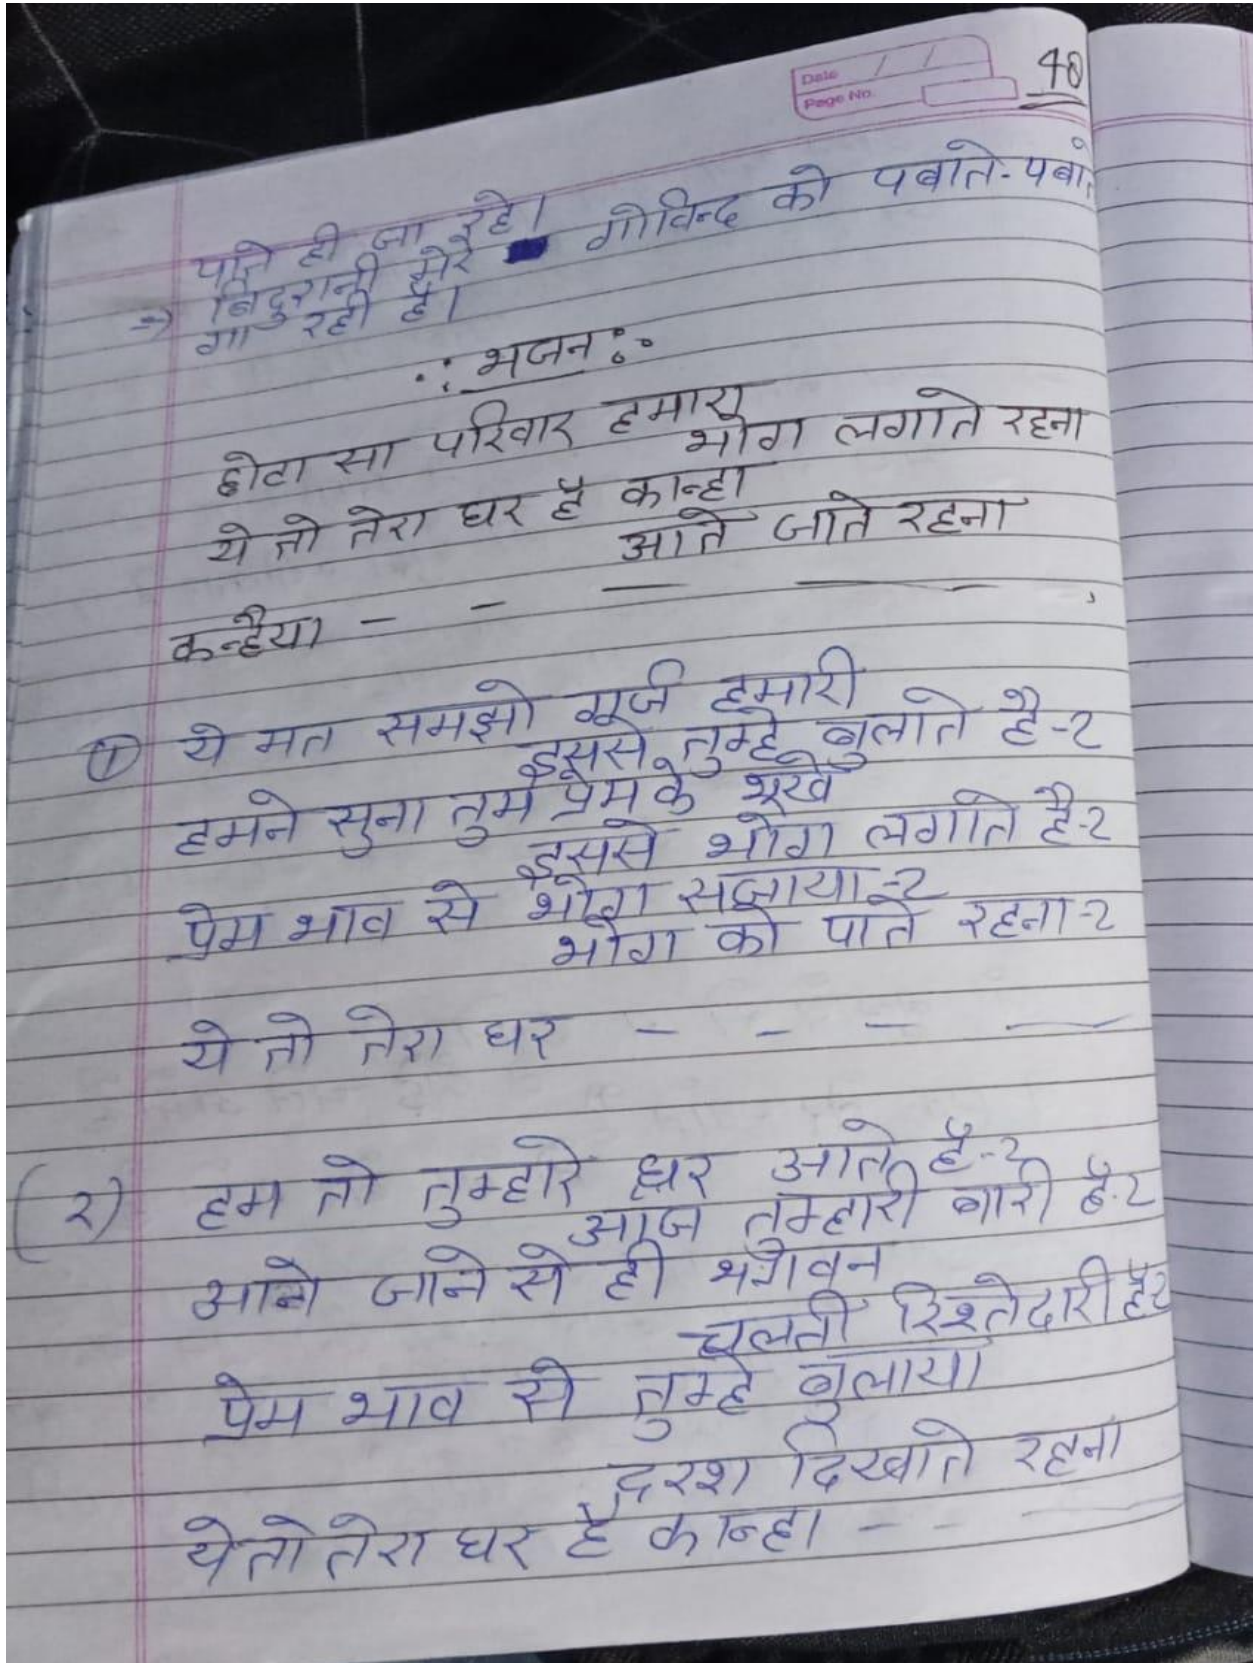 Date / /
Page No.
40
पाते ही जा रहे।
⇒ बिदुरानी मेरे गोविन्द को पबाते-पबाते
गा रही है।
∴ भजन :.
छोटा सा परिवार हमारा
भोग लगाते रहना
ये तो तेरा घर है कान्हा
आते जाते रहना
कन्हैया - - — —
① ये मत समझो गर्ज हमारी
इससे तुम्हे बुलाते है-२
हमने सुना तुम प्रेम के भूखे
इससे भोग लगाते है-२
प्रेम भाव से भोग सजाया-२
भोग को पाते रहना-२
ये तो तेरा घर - - - —
(२) हम तो तुम्हारे घर आते है-२
आज तुम्हारी बारी है-२
आने जाने से ही भगवन
चलती रिश्तेदारी है-२
प्रेम भाव से तुम्हे बुलाया
दरश दिखाते रहना
ये तो तेरा घर है कान्हा - - —